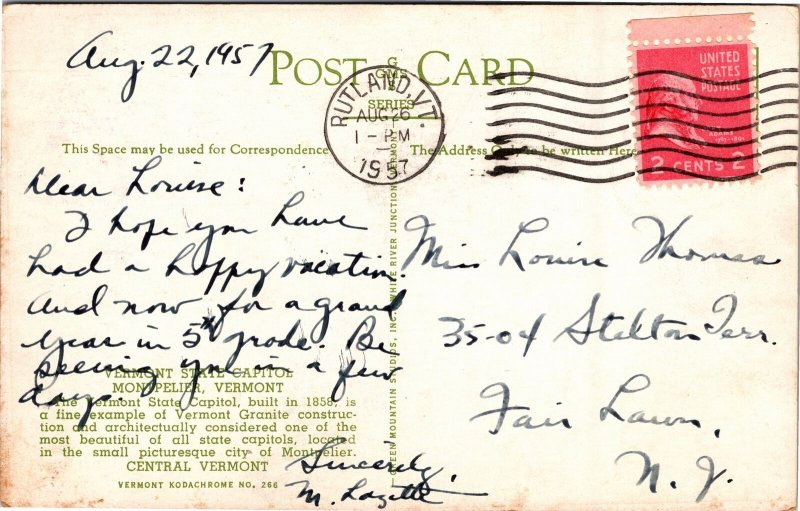 Aug. 22, 1957
POST CARD
G
GMS
S
SERIES
RUTLAND, VT.
AUG 26
1 - PM
1957
UNITED
STATES
POSTAGE
ADAMS
1797-1801
2 CENTS 2
This Space may be used for Correspondence
The Address Only to be written Here
Dear Louise:
I hope you have
had a happy vacation.
And now for a grand
year in 5th grade. Be
seeing you in a few
days.
Sincerely,
M.
Miss Louise Thomsa
35-04 Stelton Terr.
Fair Lawn,
N. J.
VERMONT STATE CAPITOL
MONTPELIER, VERMONT
The Vermont State Capitol, built in 1858, is
a fine example of Vermont Granite construc-
tion and architectually considered one of the
most beautiful of all state capitols, located
in the small picturesque city of Montpelier.
CENTRAL VERMONT
VERMONT KODACHROME NO. 266
GREEN MOUNTAIN STUDIOS, INC., WHITE RIVER JUNCTION, VERMONT